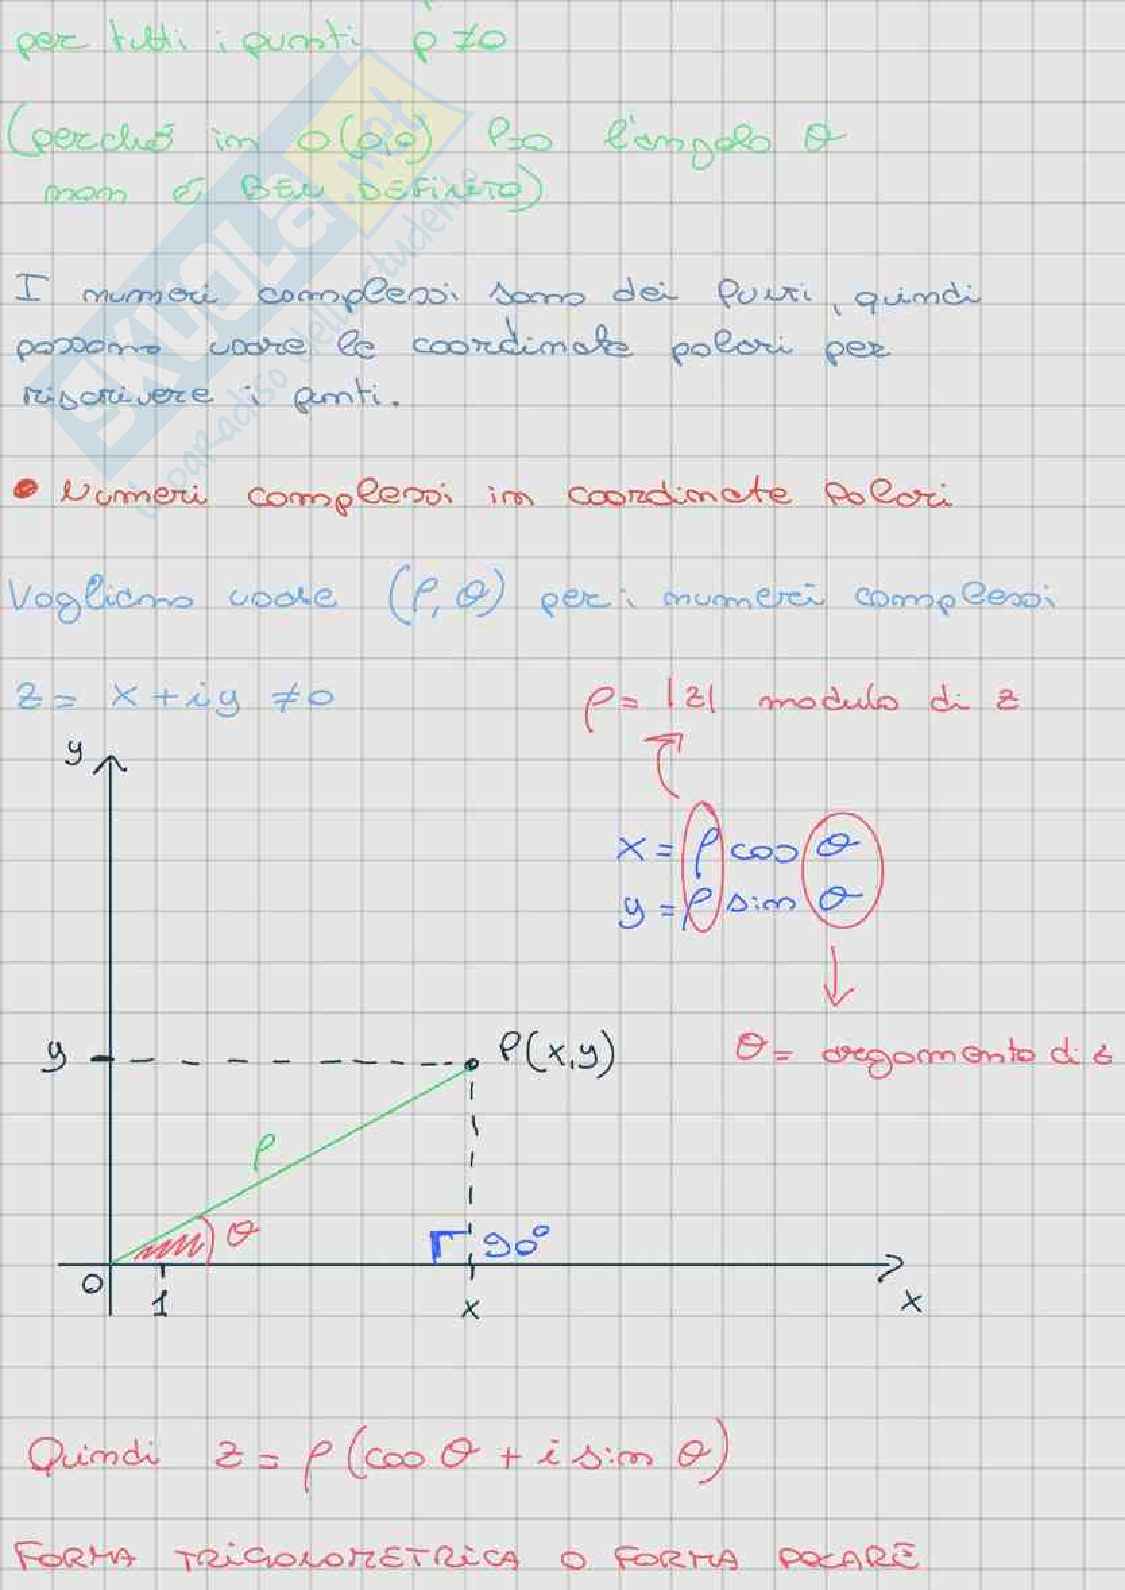 per tutti i punti ρ ≠ 0
(perché in O(0,0) ρ=0 l'angolo θ
non è BEN DEFINITO)
I numeri complessi sono dei PUNTI, quindi
possono usare le coordinate polari per
riscrivere i punti.
• Numeri complessi in coordinate Polari
Vogliamo usare (ρ,θ) per i numeri complessi
z = x + iy ≠ 0
ρ = |z| modulo di z
y
x = ρ cos θ
y = ρ sin θ
y
P(x,y)
θ = argomento di z
ρ
θ
90°
O
1
x
x
Quindi z = ρ (cos θ + i sin θ)
FORMA TRIGONOMETRICA O FORMA POLARE
SKUOLA.net
il paradiso dello studente